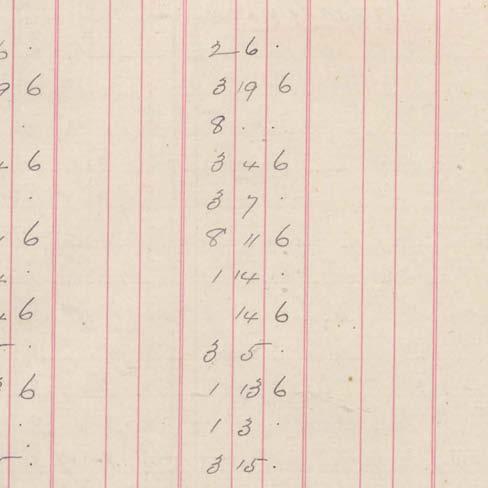 6 . 2 6 .
9 6 3 19 6
. 8 . .
4 6 3 4 6
. 3 7 .
6 8 11 6
. 1 14 .
6 14 6
. 3 5 .
3 6 1 13 6
. 1 3 .
5 . 3 15 .